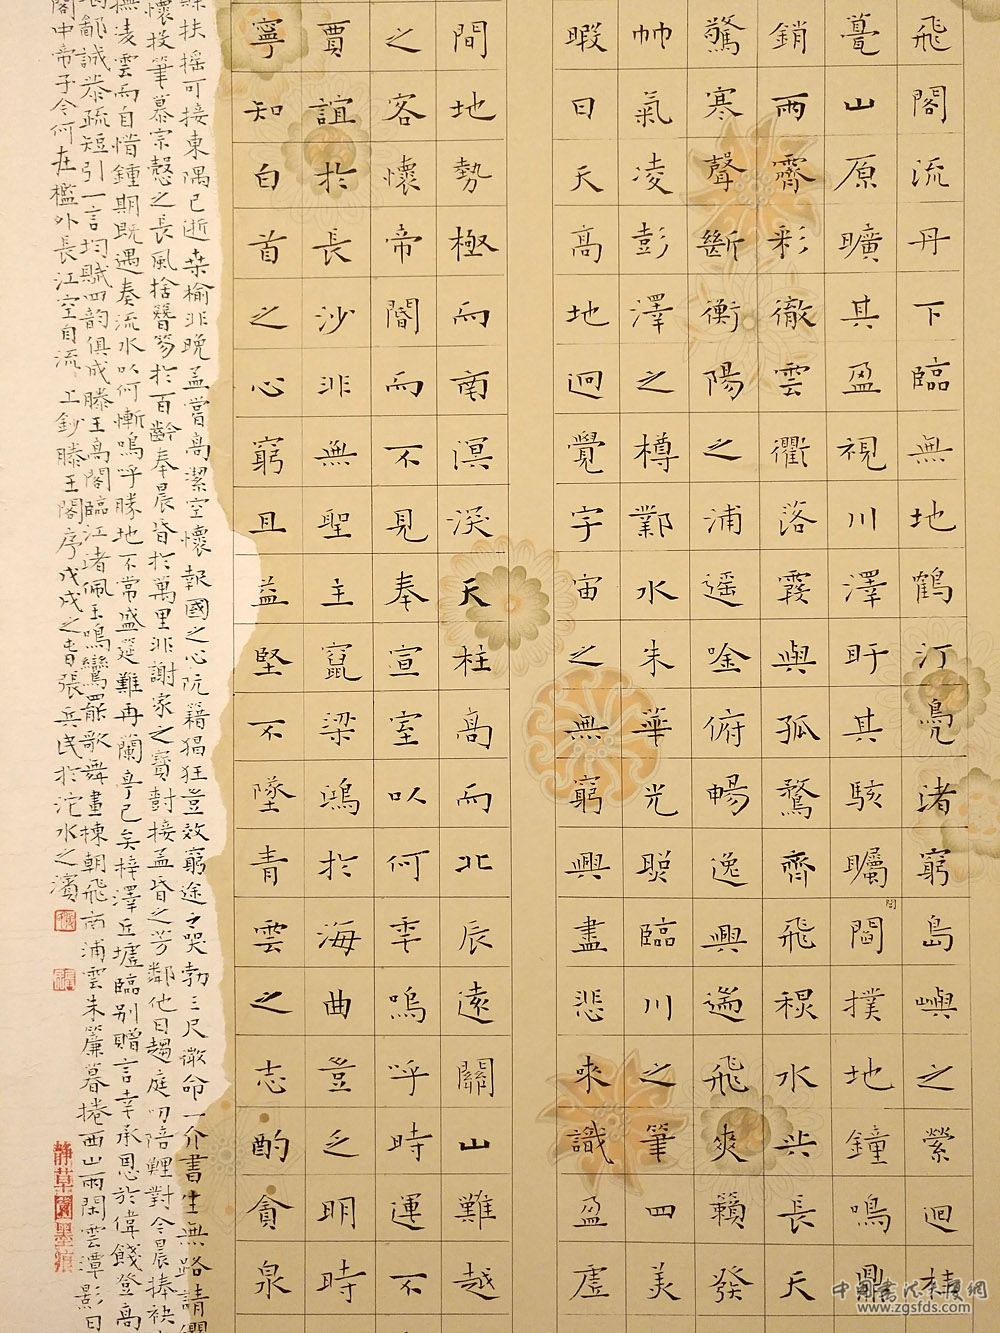 飛閣流丹下臨無地鶴汀鳧渚窮島嶼之縈迴桂
甍山原曠其盈視川澤盱其駭矚閭撲地鐘鳴鼎
閭
銷雨霽彩徹雲衢落霞與孤鶩齊飛穐水共長天
驚寒聲斷衡陽之浦遥唫俯暢逸興遄飛爽籟發
帥氣凌彭澤之樽鄴水朱華光照臨川之筆四美
暇日天高地迥覺宇宙之無窮興盡悲來識盈虛
間地勢極而南溟深天柱高而北辰遠關山難越
之客懷帝閽而不見奉宣室以何年嗚呼時運不
賈誼於長沙非無聖主竄梁鴻於海曲豈乏明時
寧知白首之心窮且益堅不墜青雲之志酌貪泉
扶搖可接東隅已逝桒榆非晚孟嘗高潔空懷報國之心阮籍猖狂豈效窮途之哭勃三尺微命一介書生無路請
懷投筆慕宗慤之長風捨簪笏於百齡奉晨昏於萬里非謝家之寶樹接孟昏之芳鄰他日趨庭叨陪鯉對今晨捧袂
撫凌雲而自惜鍾期既遇奏流水以何慚嗚呼勝地不常盛筵難再蘭亭已矣梓澤丘墟臨別贈言幸承恩於偉餞登高
鄙誠恭疏短引一言均賦四韵俱成滕王高閣臨江渚佩玉鳴鸞罷歌舞畫棟朝飛南浦雲朱簾暮捲西山雨閑雲潭影日
閣中帝子今何在檻外長江空自流 上鈔滕王閣序戊戌之春張兵民於沱水之濱
中国书法大厦网
www.zgsfds.com